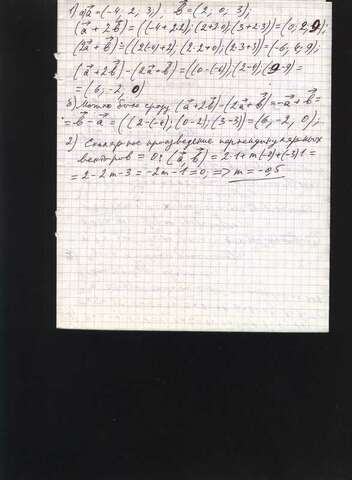 1) а) a⃗ = (-4, 2, 3) b⃗ = (2, 0, 3);
(a⃗ + 2b⃗) = ((-4+2·2); (2+2·0); (3+2·3) = (0, 2, 9);
(2a⃗ + b⃗) = ((2(-4)+2); (2·2+0); (2·3+3) = (-6, 4, 9);
(a⃗+2b⃗) - (2a⃗+b⃗) = ((0-(-6)); (2-4); (9-9) =
= (6, -2, 0)
б) Можно было сразу (a⃗+2b⃗) - (2a⃗+b⃗) = -a⃗ + b⃗ =
= b⃗ - a⃗ = ((2-(-4); (0-2); (3-3)) = (6, -2, 0);
2) Скалярное произведение перпендикулярных
векторов = 0; (a⃗, b⃗) = 2·1 + m(-2) + (-3)1 =
= 2 - 2m - 3 = -2m - 1 = 0, => m = -0,5